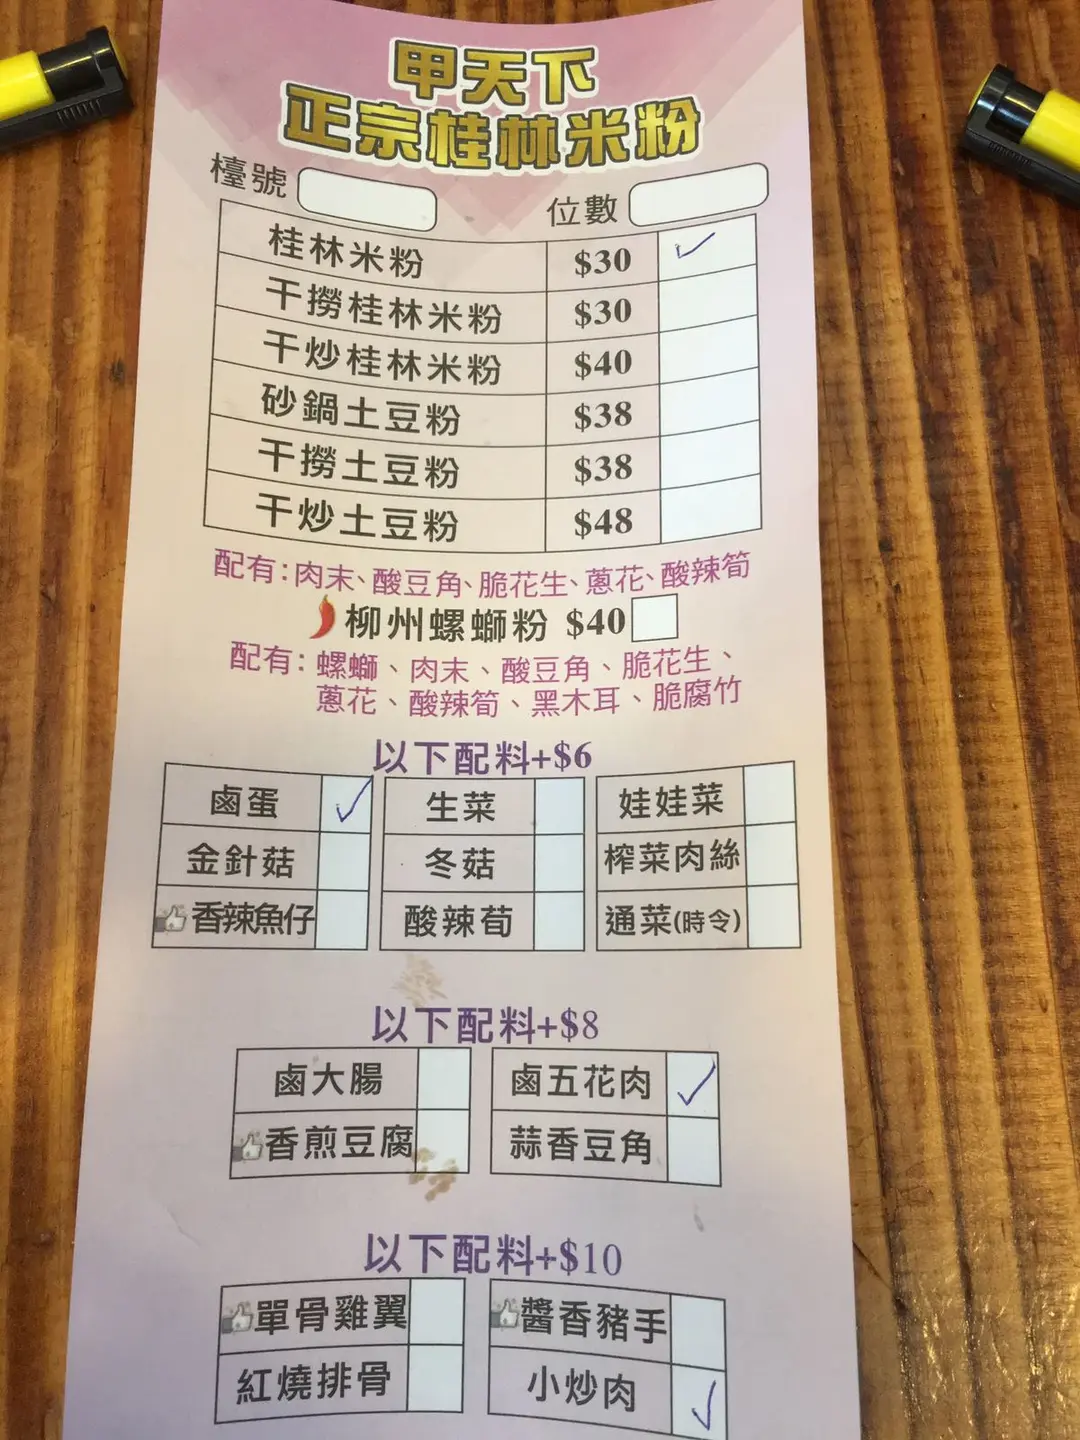 甲天下
正宗桂林米粉
檯號 位數
桂林米粉 $30
干撈桂林米粉 $30
干炒桂林米粉 $40
砂鍋土豆粉 $38
干撈土豆粉 $38
干炒土豆粉 $48
配有:肉末、酸豆角、脆花生、蔥花、酸辣筍
柳州螺螄粉 $40
配有:螺螄、肉末、酸豆角、脆花生、
蔥花、酸辣筍、黑木耳、脆腐竹
以下配料+$6
鹵蛋 生菜 娃娃菜
金針菇 冬菇 榨菜肉絲
香辣魚仔 酸辣荀 通菜(時令)
以下配料+$8
鹵大腸 鹵五花肉
香煎豆腐 蒜香豆角
以下配料+$10
單骨雞翼 醬香豬手
紅燒排骨 小炒肉